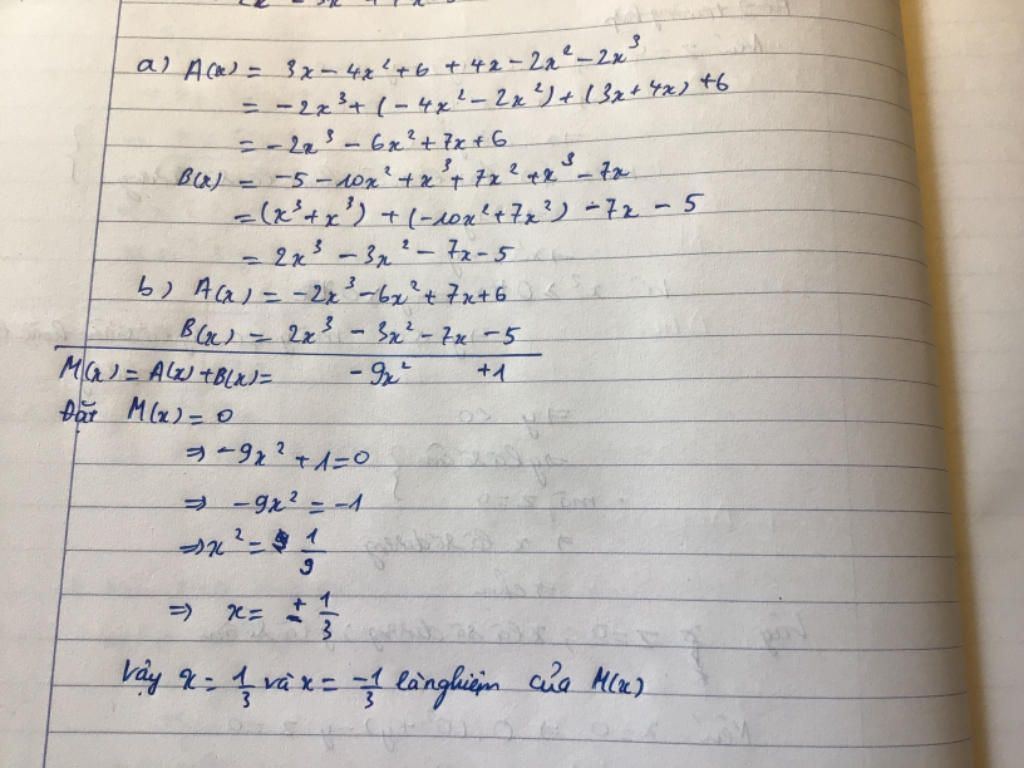 a) A(x) = 3x - 4x² + 6 + 4x - 2x² - 2x³
= -2x³ + (-4x² - 2x²) + (3x + 4x) + 6
= -2x³ - 6x² + 7x + 6
B(x) = -5 - 10x² + x³ + 7x² + x³ - 7x
= (x³ + x³) + (-10x² + 7x²) - 7x - 5
= 2x³ - 3x² - 7x - 5
b) A(x) = -2x³ - 6x² + 7x + 6
B(x) = 2x³ - 3x² - 7x - 5
M(x) = A(x) + B(x) = -9x² + 1
Đặt M(x) = 0
⇒ -9x² + 1 = 0
⇒ -9x² = -1
⇒ x² = 1/9
⇒ x = ± 1/3
Vậy x = 1/3 và x = -1/3 là nghiệm của M(x)